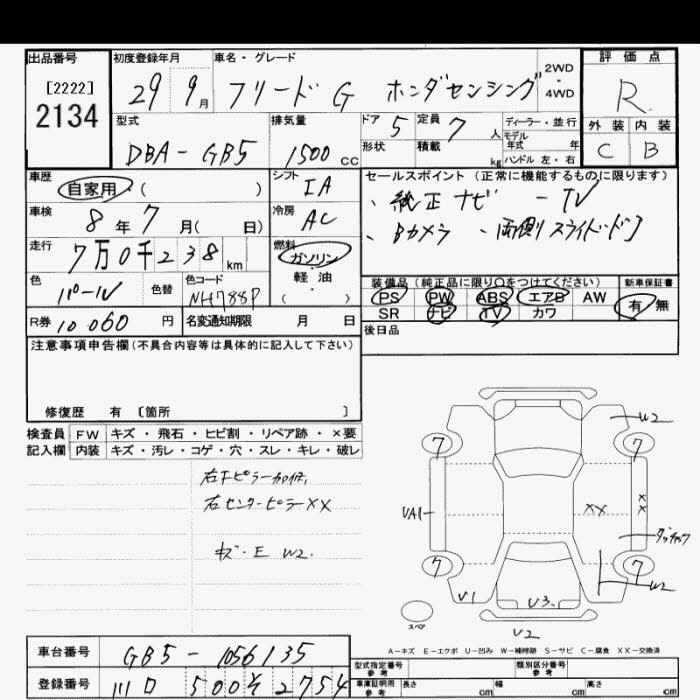 出品番号
[2222]
2134
初度登録年月
29 9月
車名・グレード
フリード G ホンダセンシング
2WD
・
4WD
評価点
R
外装 内装
C B
型式
DBA-GB5
排気量
1500cc
ドア 5
定員 7人
ディーラー・並行
モデル年式 年
形状
積載 kg
ハンドル 左・右
車歴
自家用・( )
シフト
IA
セールスポイント (正常に機能するものに限ります)
、純正ナビ ー TV
、Bカメラ 、両側スライドドア
車検
8年7月( 日)
冷房
AC
走行
7万0千238km
燃料
ガソリン
・
軽油
( )
色
パール
色替
色コード
NH788P
装備品 (純正品に限り○をつけてください)
新車保証書
PS PW ABS エアB AW
有 無
SR ナビ TV カワ
R券 10.060円
名変通知期限 月 日
後日品
注意事項申告欄 (不具合内容等は具体的に記入して下さい)
修復歴 有 [箇所 ]
検査員記入欄
FW キズ・飛石・ヒビ割・リペア跡・×要
内装 キズ・汚レ・コゲ・穴・スレ・キレ・破レ
右センターピラーXX
キズ・E W2.
W2
7
7
VA1
XX
XX
7
7
W2
V1
V3
V2
スペア
A-キズ E-エクボ U-凹み W-補修跡 S-サビ C-腐食 XX-交換済
車台番号
GB5-1056135
型式指定番号
参考
類別区分番号
参考
登録番号
川口 500 そ 2754
車庫証明用
参考
長さ cm
幅 cm
高さ cm